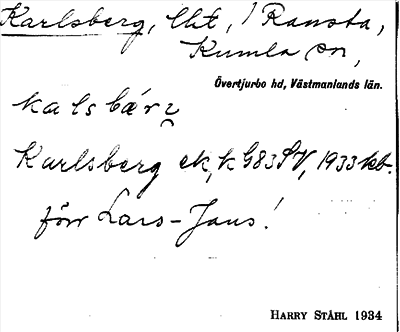 Karlsberg, lht, / Ransta,
Kumla sn,
Övertjurbo hd, Västmanlands län.
kalsbärɿ
Karlsberg ek, k G83SV, 1933 kb.
förr Lars-Jans!
HARRY STÅHL 1934